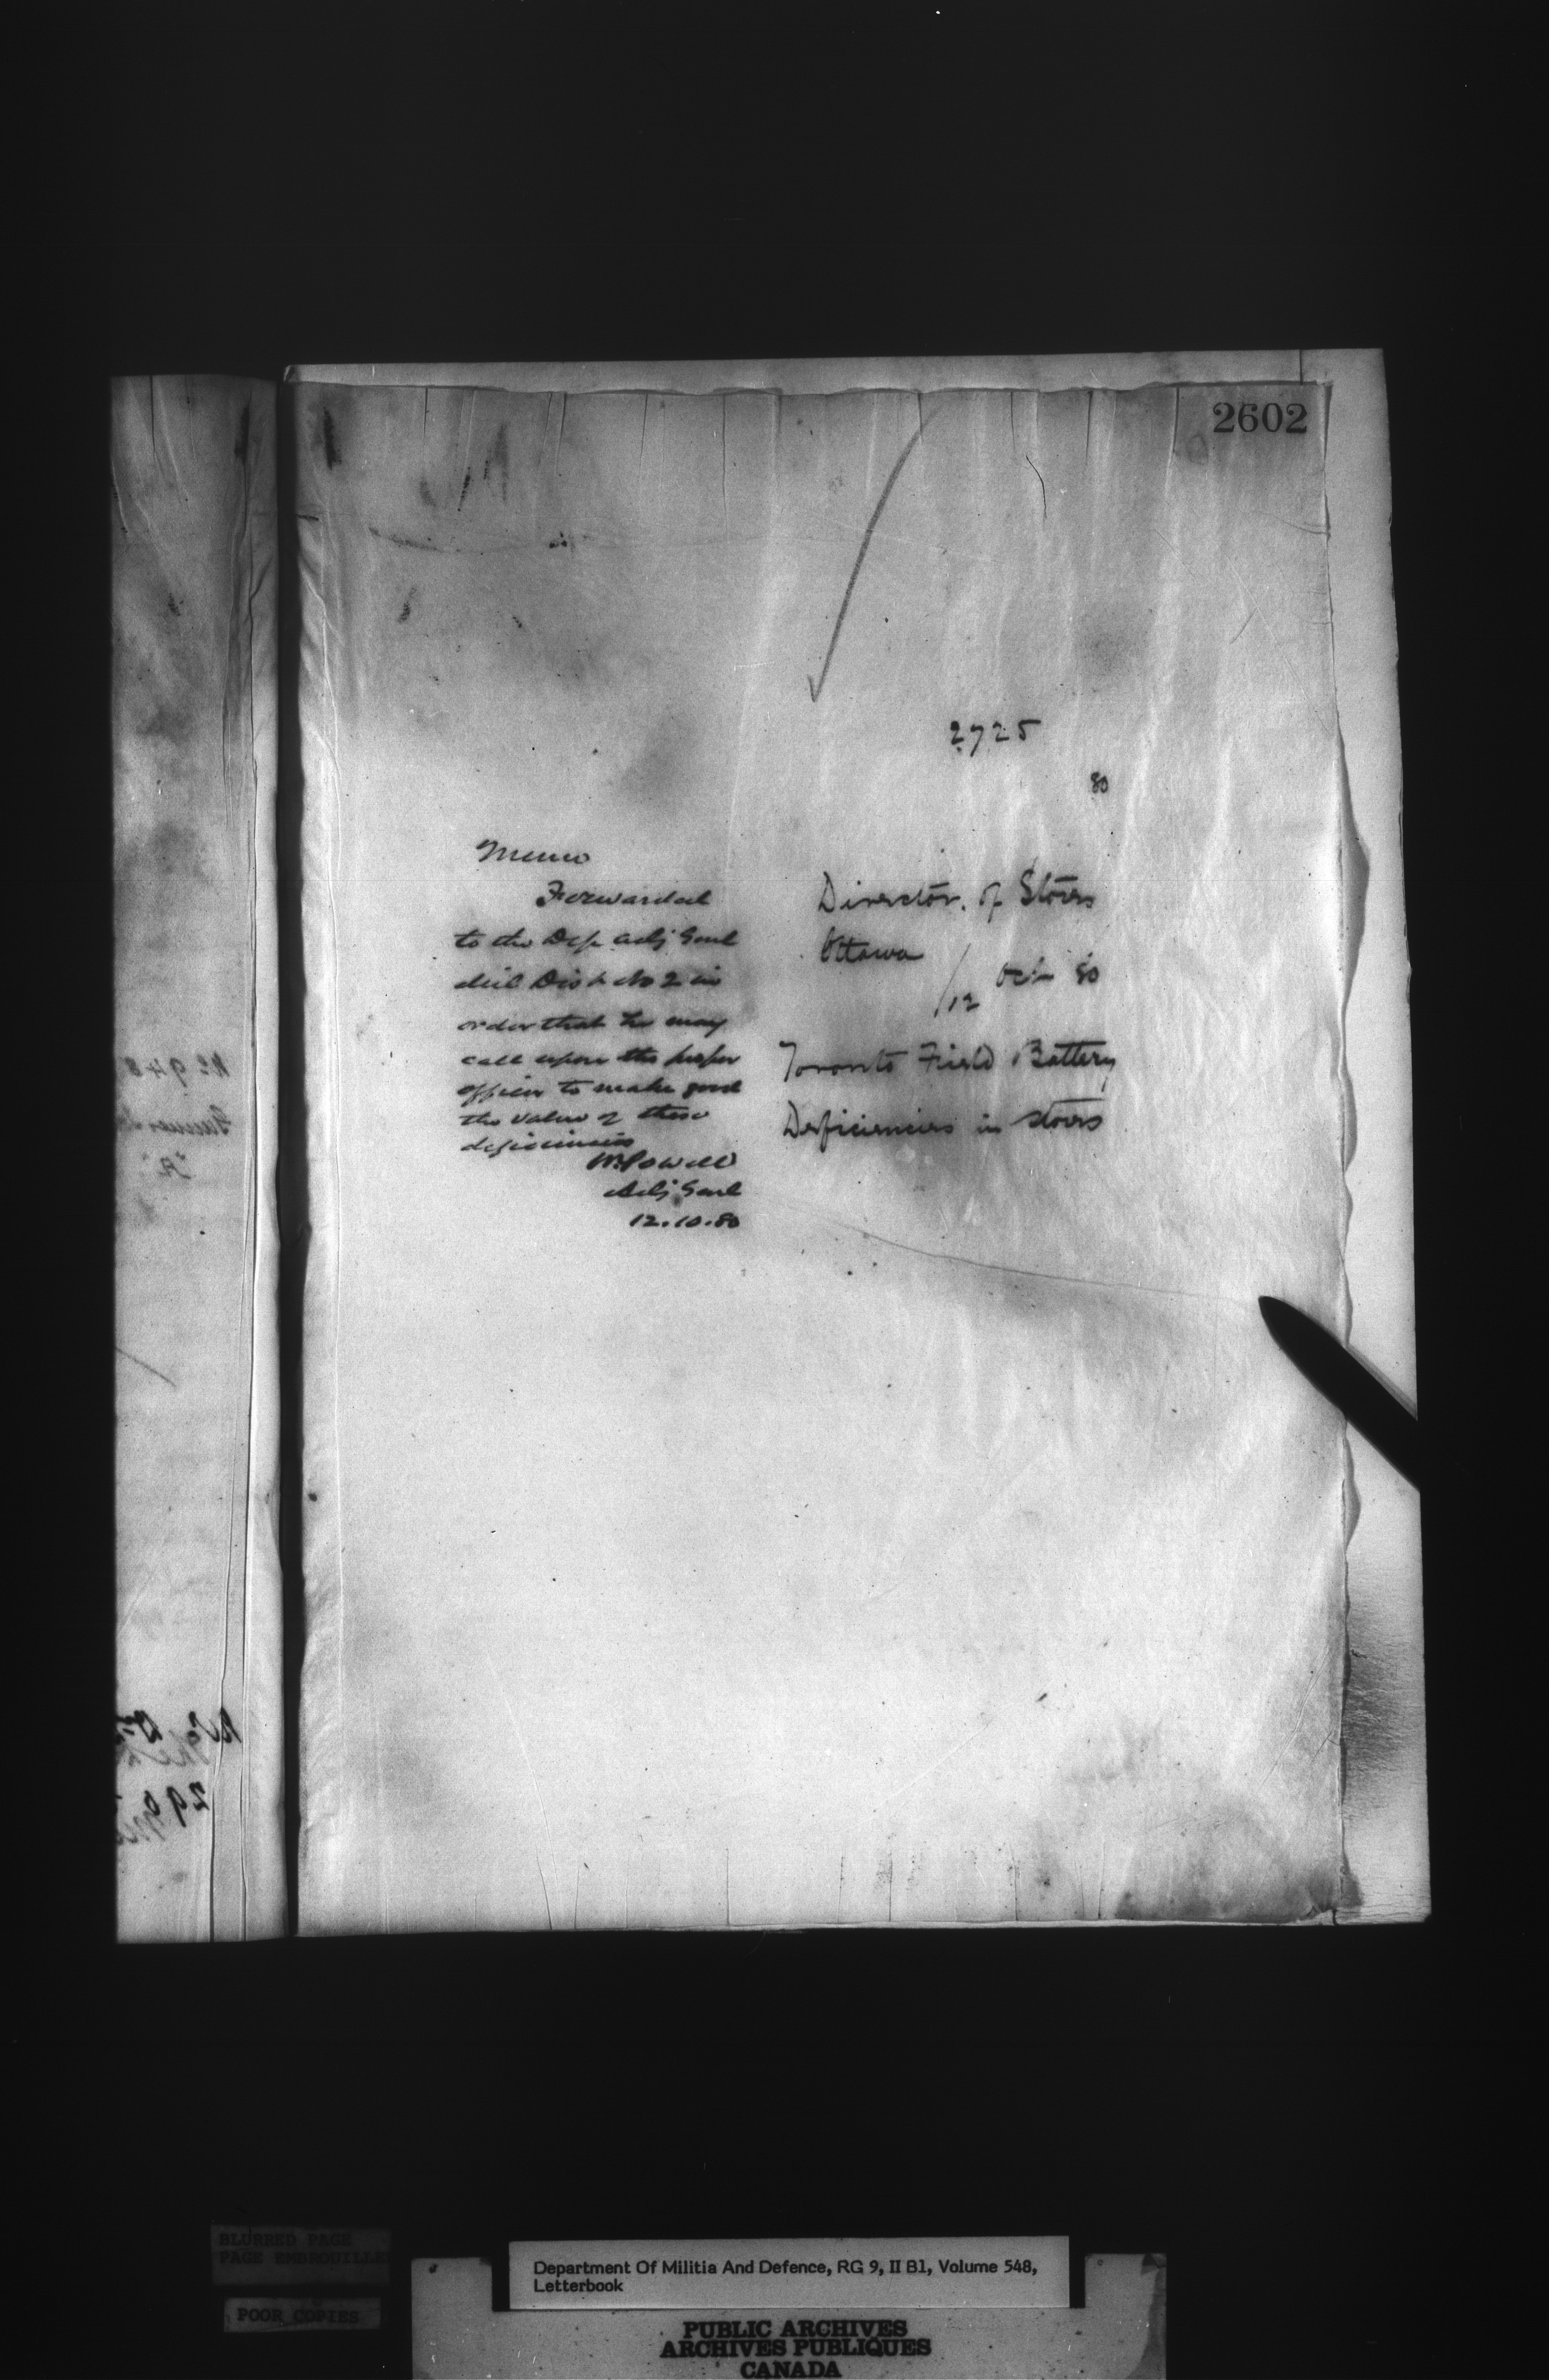 2602
2725
80
Memo
Forwarded
to the Dep Adj Genl
Mil Dist No 2 in
order that he may
call upon the proper
officer to make good
the value of these
deficiencies
W Powell
Adj Genl
12.10.80
Director of Stores
Ottawa
/12 Oct 80
Toronto Field Battery
Deficiencies in stores
No 948
"A"
299
BLURRED PAGE
PAGE EMBROUILLE
POOR COPIES
Department Of Militia And Defence, RG 9, II B1, Volume 548,
Letterbook
PUBLIC ARCHIVES
ARCHIVES PUBLIQUES
CANADA